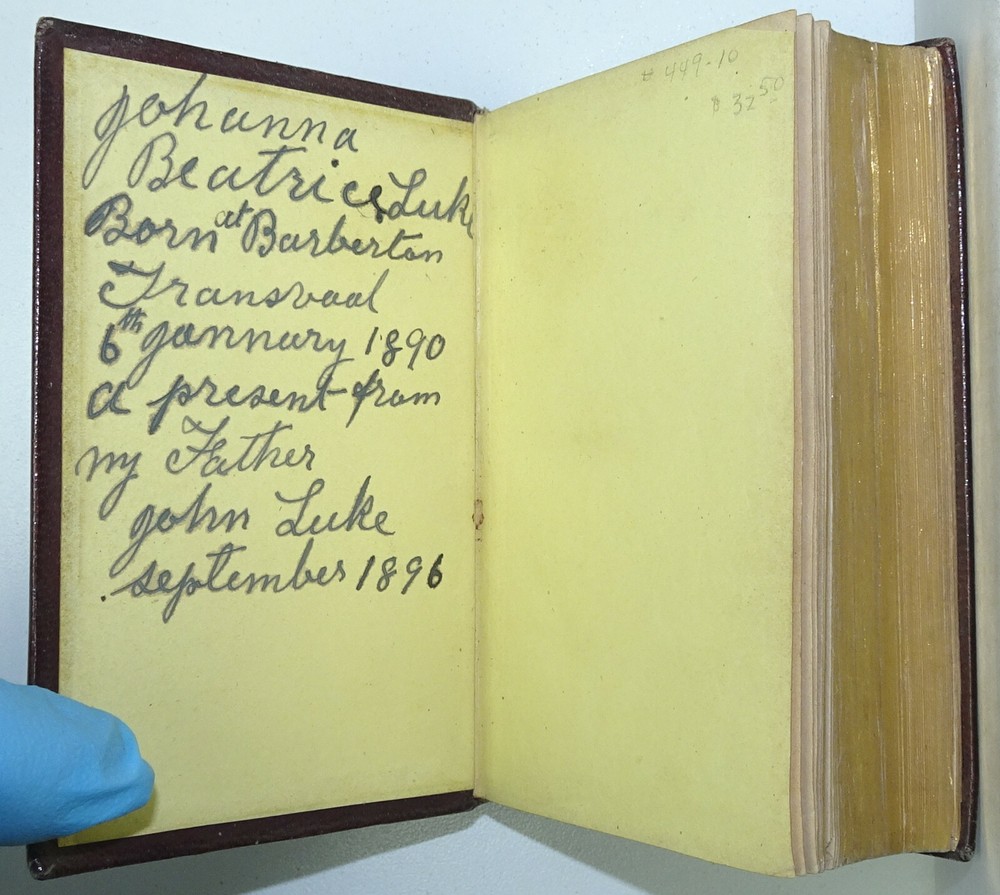 Johanna
Beatrice Luke
Born at Barberton
Transvaal
6th January 1890
a present from
my Father
John Luke
September 1896
# 449-10
$ 32.50